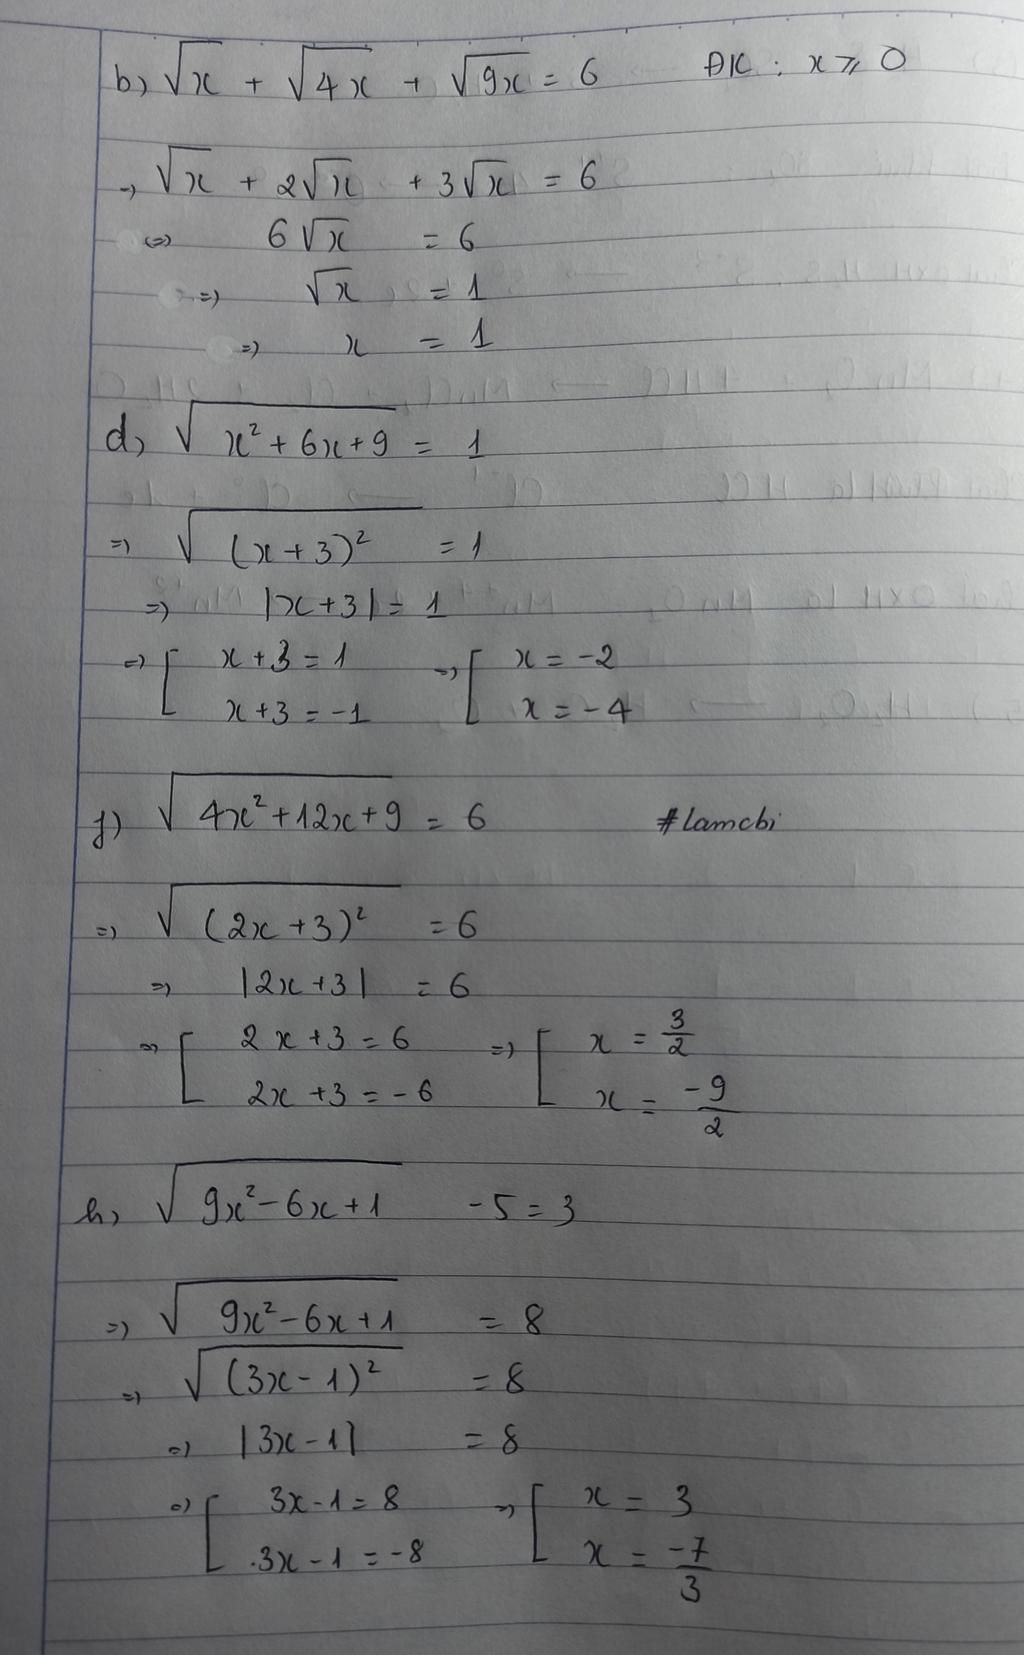 b, √x + √4x + √9x = 6 ĐK : x ⩾ 0
=> √x + 2√x + 3√x = 6
<=> 6√x = 6
=> √x = 1
=> x = 1
d, √x² + 6x + 9 = 1
=> √(x + 3)² = 1
=> |x + 3| = 1
=> [ x + 3 = 1 => [ x = -2
x + 3 = -1 x = -4
f) √4x² + 12x + 9 = 6 #lamcbi
=> √(2x + 3)² = 6
=> |2x + 3| = 6
=> [ 2x + 3 = 6 => [ x = 3/2
2x + 3 = -6 x = -9/2
h, √9x² - 6x + 1 - 5 = 3
=> √9x² - 6x + 1 = 8
=> √(3x - 1)² = 8
=> |3x - 1| = 8
=> [ 3x - 1 = 8 => [ x = 3
3x - 1 = -8 x = -7/3